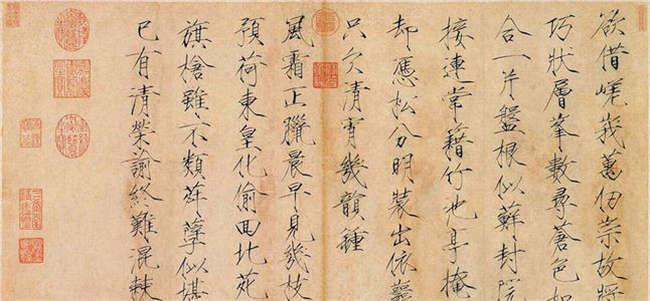 欲借嵯峨萬仞崇故將
巧狀層峯數尋蒼色如
合一片盤根似蘚封院
接連常籍竹池亭掩
却憑松分明裝出依巖
只欠清宵幾韻鍾
風霜正臘晨早見幾枝
預荷東皇化偷回北苑
旗槍雖不類孽似堪
已有清榮諭終難混棘